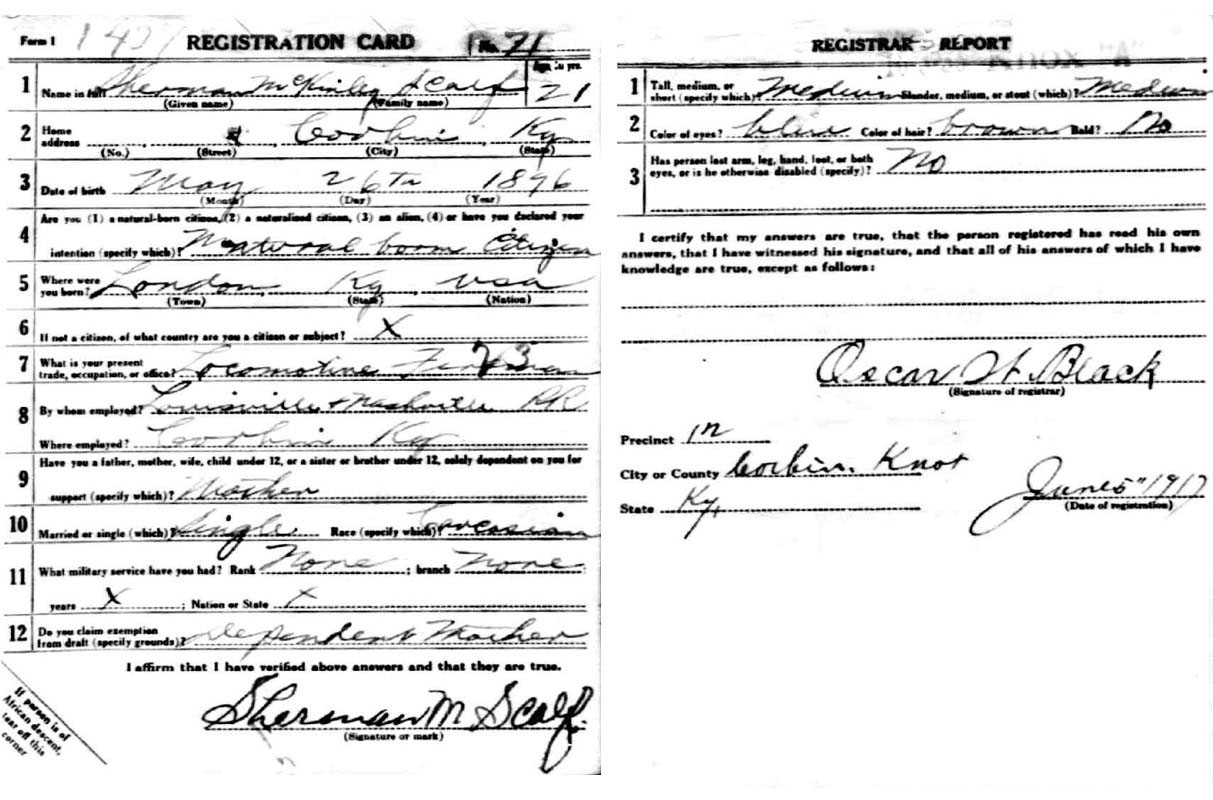 Form 1 REGISTRATION CARD No. 71
1 Name in full Sherman McKinley Scalf Age, in yrs. 21
(Given name) (Family name)
2 Home address Corbin Ky
(No.) (Street) (City) (State)
3 Date of birth May 26th 1896
(Month) (Day) (Year)
Are you (1) a natural-born citizen, (2) a naturalized citizen, (3) an alien, (4) or have you declared your
4 intention (specify which)? Natural born Citizen
5 Where were you born? London, Ky, USA
(Town) (State) (Nation)
6 If not a citizen, of what country are you a citizen or subject? X
7 What is your present trade, occupation, or office? Locomotive Fireman 23
8 By whom employed? Louisville & Nashville RR
Where employed? Corbin Ky
9 Have you a father, mother, wife, child under 12, or a sister or brother under 12, solely dependent on you for
support (specify which)? Mother
10 Married or single (which)? Single Race (specify which)? Caucasian
11 What military service have you had? Rank None ; branch None
years X ; Nation or State X
12 Do you claim exemption from draft (specify grounds)? Dependent Mother
I affirm that I have verified above answers and that they are true.
Sherman M Scalf.
(Signature or mark)
If person is of
African descent,
tear off this
corner
REGISTRAR'S REPORT
1 Tall, medium, or short (specify which)? Medium Slender, medium, or stout (which)? Medium
2 Color of eyes? blue Color of hair? brown Bald? No
3 Has person lost arm, leg, hand, foot, or both eyes, or is he otherwise disabled (specify)? No
I certify that my answers are true, that the person registered has read his own
answers, that I have witnessed his signature, and that all of his answers of which I have
knowledge are true, except as follows:
Oscar W. Black
(Signature of registrar)
Precinct
City or County Corbin, Knox
State Ky. June 5" 1917
(Date of registration)